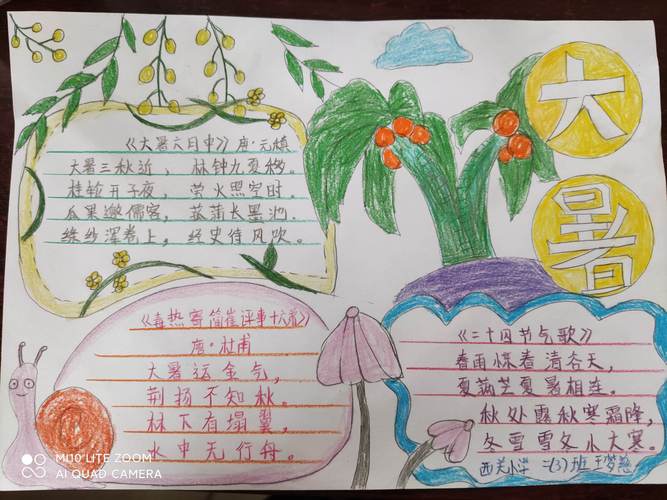 大暑
《大暑六月中》唐·元稹
大暑三秋近，林钟九夏移。
桂轮开子夜，萤火照空时。
瓜果邀儒客，菰蒲长墨池。
绛纱浑卷上，经史待风吹。
《毒热寄简崔评事十六弟》
唐·杜甫
大暑运金气，
荆扬不知秋。
林下有塌翼，
水中无行舟。
《二十四节气歌》
春雨惊春清谷天，
夏满芒夏暑相连。
秋处露秋寒霜降，
冬雪雪冬小大寒。
西关小学 二(3)班 王梦
MI 10 LITE ZOOM
AI QUAD CAMERA